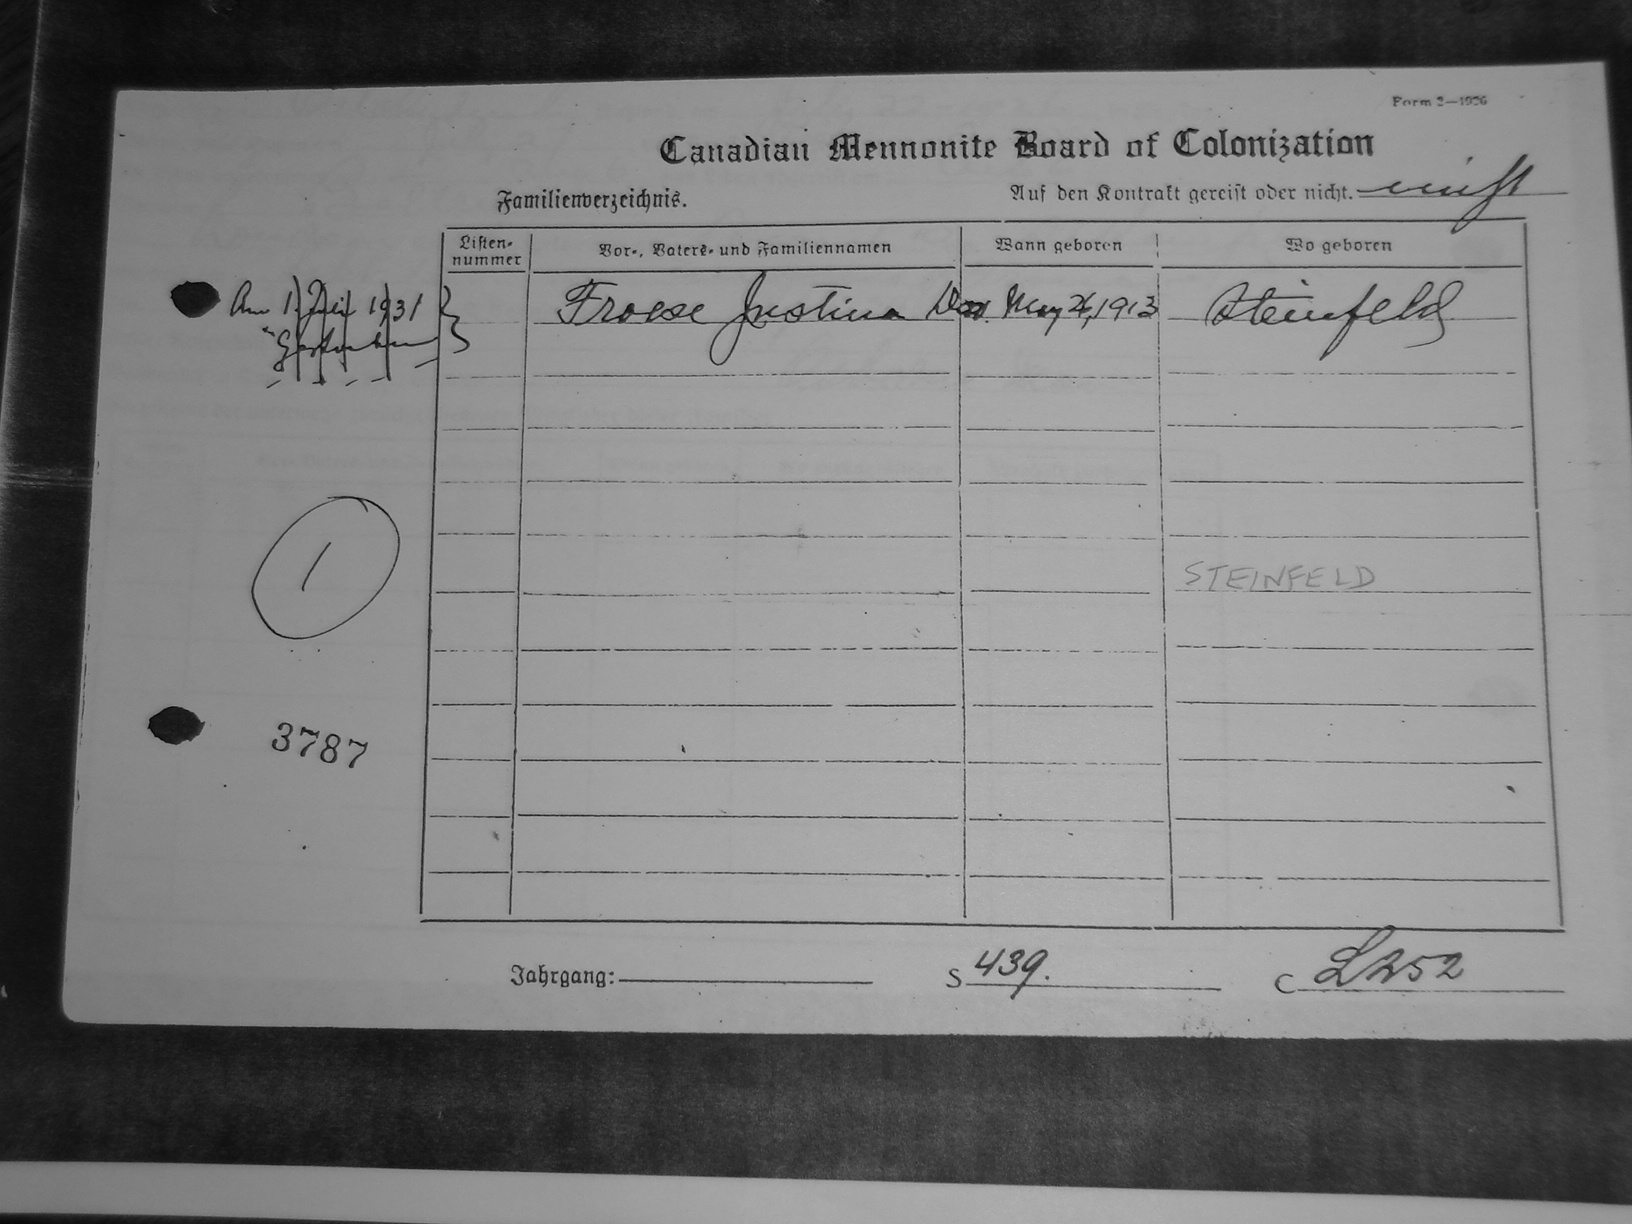 Form 2—1926
Canadian Mennonite Board of Colonization
Familienverzeichnis.
Auf den Kontrakt gereist oder nicht. nicht
Listen-
nummer
Vor-, Vaters- und Familiennamen
Wann geboren
Wo geboren
Am 1. Juli 1931
Gestorben
Froese Justina
May 1913
Steinfeld
1
STEINFELD
3787
Jahrgang:
S 439.
C L252